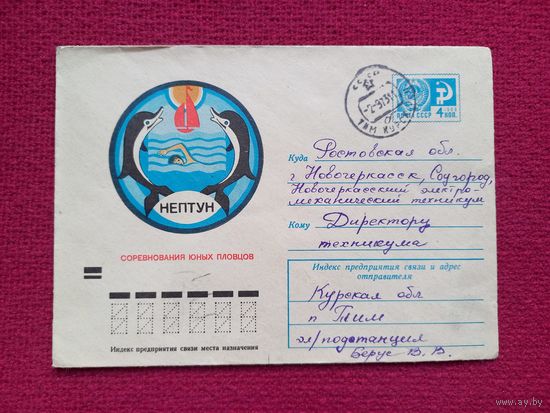 СССР
ТИМ КУРСКОЙ
ПОЧТА СССР
4 КОП.
НЕПТУН
СОРЕВНОВАНИЯ ЮНЫХ ПЛОВЦОВ
Индекс предприятия связи места назначения
Куда Ростовская обл.
г Новочеркасск, Соцгород,
Новочеркасский электро-
механический техникум
Кому Директору
техникума
Индекс предприятия связи и адрес
отправителя
Курская обл
п Тим
эл/подстанция
Берус В. В.
www.ay.by